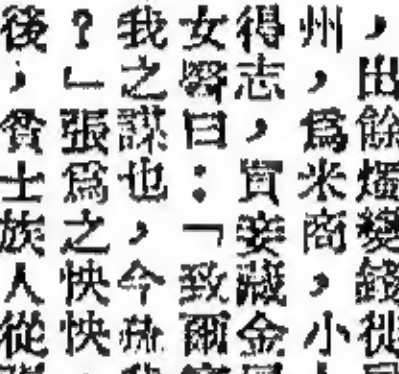 ，出餘燭變錢徙
州，爲米商，小
得志，買妾藏金
女曰：「致爾
我之謀也，今
？」張爲之怏怏
後，貧士族人從